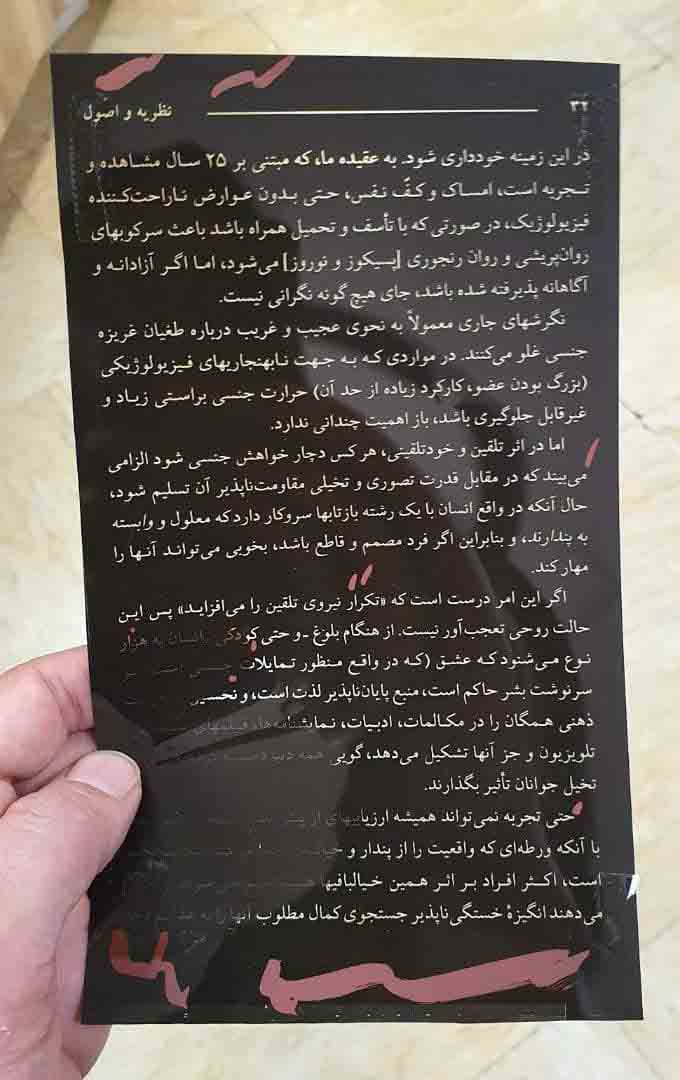 ۳۲ نظریه و اصول
در این زمینه خودداری شود. به عقیده ما، که مبتنی بر ۲۵ سال مشاهده و
تجربه است، امساک و کفّ نفس، حتی بدون عوارض ناراحت‌کننده
فیزیولوژیک، در صورتی که با تأسف و تحمیل همراه باشد باعث سرکوبهای
روان‌پریشی و روان رنجوری [پسیکوز و نوروز] می‌شود، اما اگر آزادانه و
آگاهانه پذیرفته شده باشد، جای هیچ گونه نگرانی نیست.
نگرشهای جاری معمولاً به نحوی عجیب و غریب درباره طغیان غریزه
جنسی غلو می‌کنند. در مواردی که به جهت نابهنجاریهای فیزیولوژیکی
(بزرگ بودن عضو، کارکرد زیاده از حد آن) حرارت جنسی براستی زیاد و
غیرقابل جلوگیری باشد، باز اهمیت چندانی ندارد.
اما در اثر تلقین و خودتلقینی، هر کس دچار خواهش جنسی شود الزامی
می‌بیند که در مقابل قدرت تصوری و تخیلی مقاومت‌ناپذیر آن تسلیم شود،
حال آنکه در واقع انسان با یک رشته بازتابها سروکار دارد که معلول و وابسته
به پندارند، و بنابراین اگر فرد مصمم و قاطع باشد، بخوبی می‌تواند آنها را
مهار کند.
اگر این امر درست است که «تکرار نیروی تلقین را می‌افزاید» پس این
حالت روحی تعجب‌آور نیست. از هنگام بلوغ ـ و حتی کودکی انسان به هزار
نوع می‌شنود که عشق (که در واقع منظور تمایلات جنسی است) بر
سرنوشت بشر حاکم است، منبع پایان‌ناپذیر لذت است، و نخستین
ذهنی همگان را در مکالمات، ادبیات، نمایشنامه‌ها، فیلمهای
تلویزیون و جز آنها تشکیل می‌دهد، گویی همه دست
تخیل جوانان تأثیر بگذارند.
حتی تجربه نمی‌تواند همیشه ارزیابیهای از پیش
با آنکه ورطه‌ای که واقعیت را از پندار و
است، اکثر افراد بر اثر همین خیالبافیها
می‌دهند انگیزهٔ خستگی‌ناپذیر جستجوی کمال مطلوب آنها را به